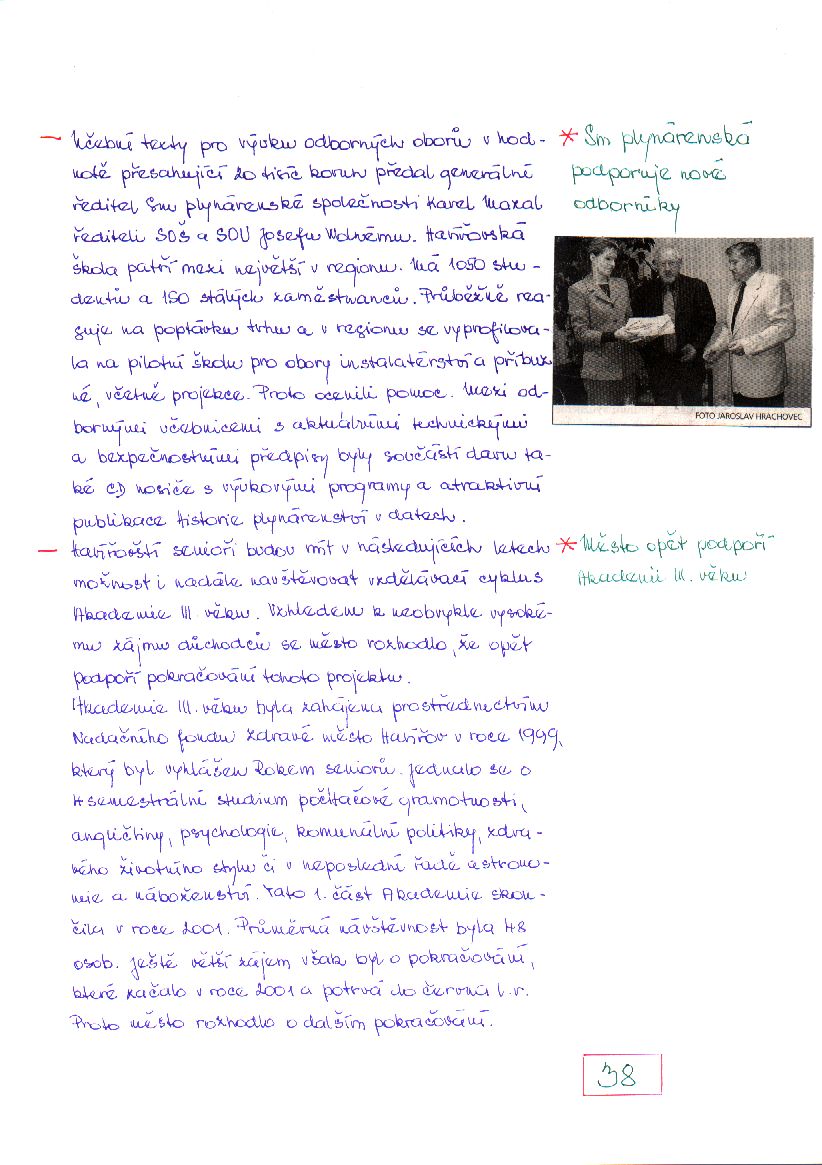 — Učební texty pro výuku odborných oborů v hod-
notě přesahující 20 tisíc korun předal generální
ředitel Sm plynárenské společnosti Karel Mazal
řediteli SOŠ a SOU Josefu Wdnému. Havířovská
škola patří mezi největší v regionu. Má 1050 stu-
dentů a 150 stálých zaměstnanců. Průběžně rea-
guje na poptávku trhu a v regionu se vyprofilova-
la na pilotní školu pro obory instalatérství a příbuz
né, včetně projekce. Proto ocenili pomoc. Mezi od-
bornými učebnicemi s aktuálními technickými
a bezpečnostními předpisy byly součástí daru ta-
ké CD nosiče s výukovými programy a atraktivní
publikace Historie plynárenství v datech.
* Sm plynárenská
podporuje nové
odborníky
FOTO JAROSLAV HRACHOVEC
— Havířovští senioři budou mít v následujících letech
možnost i nadále navštěvovat vzdělávací cyklus
Akademie III. věku. Vzhledem k neobvykle vysoké-
mu zájmu důchodců se město rozhodlo, že opět
podpoří pokračování tohoto projektu.
Akademie III. věku byla zahájena prostřednictvím
Nadačního fondu Zdravé město Havířov v roce 1999,
který byl vyhlášen Rokem seniorů. Jednalo se o
4 semestrální studium počítačové gramotnosti,
angličtiny, psychologie, komunální politiky, zdra-
vého životního stylu či v neposlední řadě astrono-
mie a náboženství. Tato 1. část Akademie skon-
čila v roce 2001. Průměrná návštěvnost byla 48
osob. Ještě větší zájem však byl o pokračování,
které začalo v roce 2001 a potrvá do června t.r.
Proto město rozhodlo o dalším pokračování.
* Město opět podpoří
Akademii III. věku
38